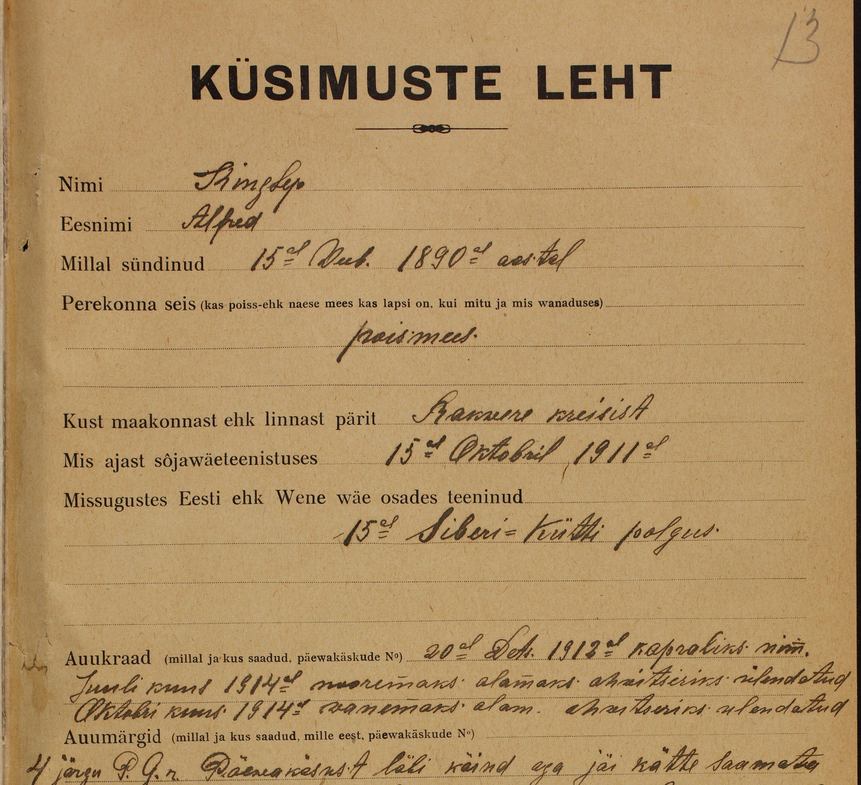 13
KÜSIMUSTE LEHT
Nimi Kingsep
Eesnimi Alfred
Millal sündinud 15al Veeb. 1890al aastal
Perekonna seis (kas poiss-ehk naese mees kas lapsi on, kui mitu ja mis wanaduses)
poismees.
Kust maakonnast ehk linnast pärit Rakvere kreisist
Mis ajast sôjawäeteenistuses 15al Oktobril 1911al
Missugustes Eesti ehk Wene wäe osades teeninud
15al Siberi= Kütti polgus.
Auukraad (millal ja kus saadud, päewakäskude No) 20al Dets. 1912al kapraliks nim.
Juuli kuus 1914al nooremaks alamaks ohvitseriks ülendatud
Oktobri kuus 1914al vanemaks alam. ohvitseriks ülendatud
Auumärgid (millal ja kus saadud, mille eest, päewakäskude No)
4 järgu P. G. r. Päevakäsust läbi käind aga jäi kätte saamata